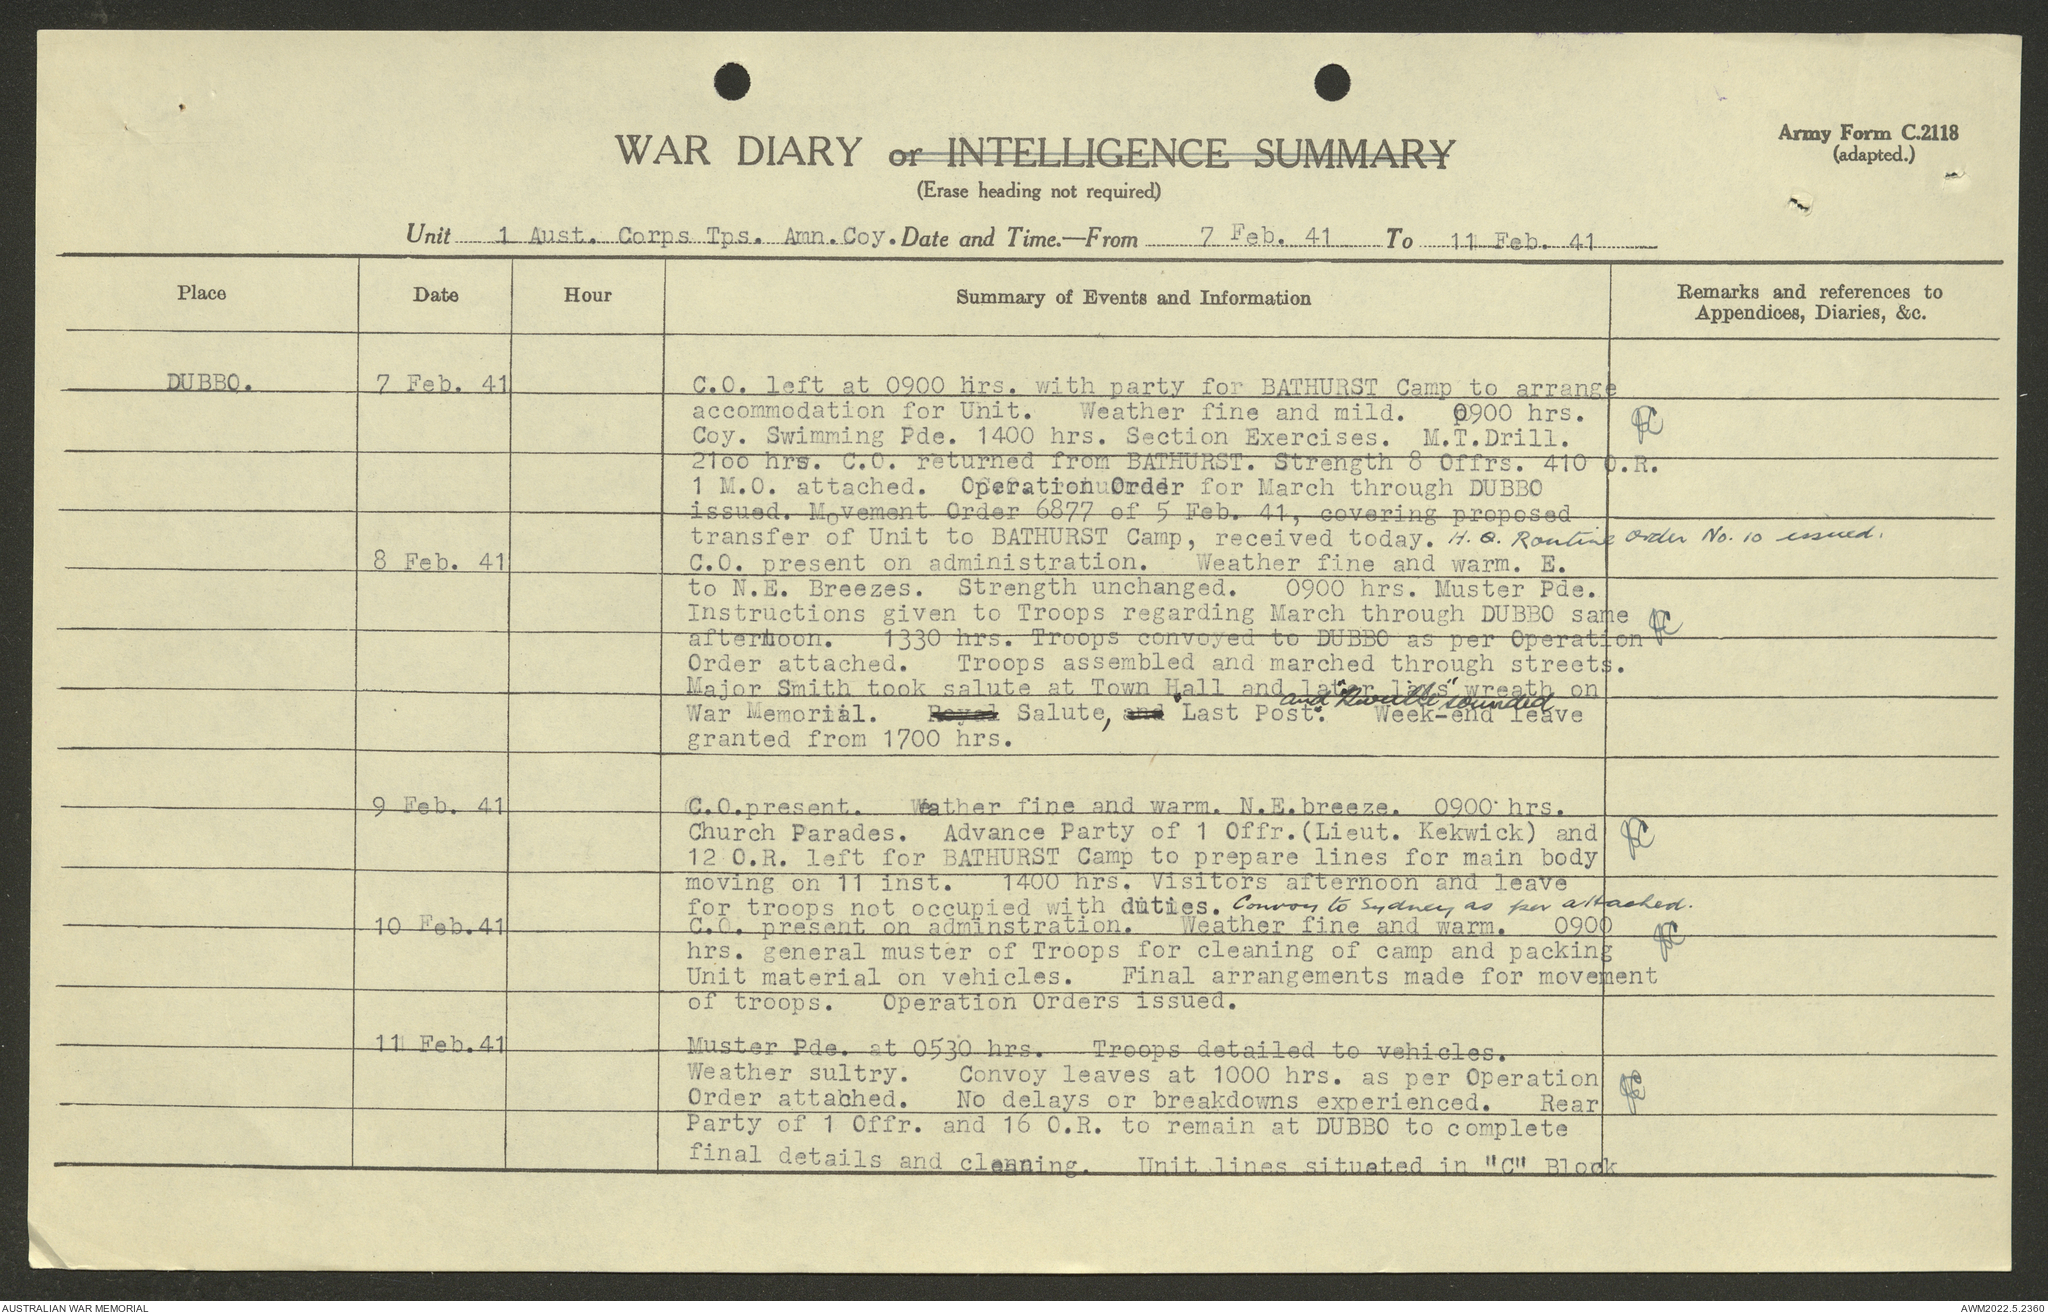 WAR DIARY or INTELLIGENCE SUMMARY
Army Form C.2118
(adapted.)
(Erase heading not required)
Unit 1 Aust. Corps Tps. Amn.Coy. Date and Time.—From 7 Feb. 41 To 11 Feb. 41
Place Date Hour Summary of Events and Information Remarks and references to
Appendices, Diaries, &c.
DUBBO. 7 Feb. 41 C.O. left at 0900 hrs. with party for BATHURST Camp to arrange
accommodation for Unit. Weather fine and mild. 0900 hrs.
Coy. Swimming Pde. 1400 hrs. Section Exercises. M.T.Drill.
2100 hrs. C.O. returned from BATHURST. Strength 8 Offrs. 410 O.R.
1 M.O. attached. Operation Order for March through DUBBO
issued. Movement Order 6877 of 5 Feb. 41, covering proposed
transfer of Unit to BATHURST Camp, received today. H.Q. Routine Order No. 10 issued.
8 Feb. 41 C.O. present on administration. Weather fine and warm. E.
to N.E. Breezes. Strength unchanged. 0900 hrs. Muster Pde.
Instructions given to Troops regarding March through DUBBO same
afternoon. 1330 hrs. Troops convoyed to DUBBO as per Operation
Order attached. Troops assembled and marched through streets.
Major Smith took salute at Town Hall and later laid wreath on
War Memorial. Royal Salute, and "Last Post". and "Reveille" sounded Week-end leave
granted from 1700 hrs.
9 Feb. 41 C.O.present. Weather fine and warm. N.E.breeze. 0900 hrs.
Church Parades. Advance Party of 1 Offr.(Lieut. Kekwick) and
12 O.R. left for BATHURST Camp to prepare lines for main body
moving on 11 inst. 1400 hrs. Visitors afternoon and leave
for troops not occupied with duties. Convoy to Sydney as per attached.
10 Feb.41 C.O. present on adminstration. Weather fine and warm. 0900
hrs. general muster of Troops for cleaning of camp and packing
Unit material on vehicles. Final arrangements made for movement
of troops. Operation Orders issued.
11 Feb.41 Muster Pde. at 0530 hrs. Troops detailed to vehicles.
Weather sultry. Convoy leaves at 1000 hrs. as per Operation
Order attached. No delays or breakdowns experienced. Rear
Party of 1 Offr. and 16 O.R. to remain at DUBBO to complete
final details and cleaning. Unit lines situated in "C" Block
AUSTRALIAN WAR MEMORIAL
AWM2022.5.2360